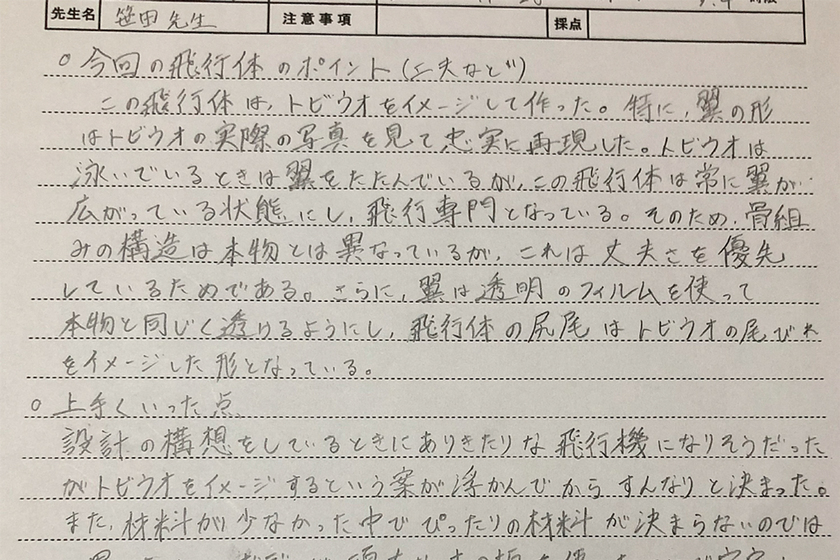 先生名 笹田先生 注意事項 採点
○ 今回の飛行体のポイント(工夫など)
この飛行体は、トビウオをイメージして作った。特に、翼の形
はトビウオの実際の写真を見て忠実に再現した。トビウオは
泳いでいるときは翼をたたんでいるが、この飛行体は常に翼が
広がっている状態にし、飛行専門となっている。そのため、骨組
みの構造は本物とは異なっているが、これは丈夫さを優先
しているためである。さらに、翼は透明のフィルムを使って
本物と同じく透けるようにし、飛行体の尻尾はトビウオの尾びれ
をイメージした形となっている。
○ 上手くいった点
設計の構想をしているときにありきたりな飛行機になりそうだった
がトビウオをイメージするという案が浮かんでからすんなりと決まった。
また、材料が少なかった中でぴったりの材料が決まらないのでは